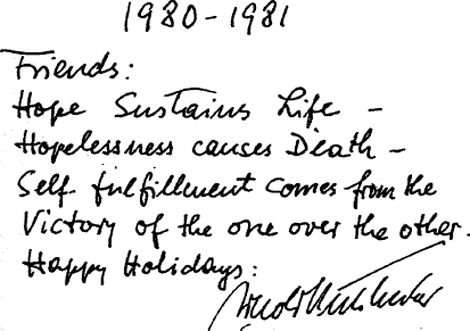 1980-1981
Friends:
Hope Sustains Life -
Hopelessness causes Death -
Self-fulfillment comes from the
Victory of the one over the other.
Happy Holidays: